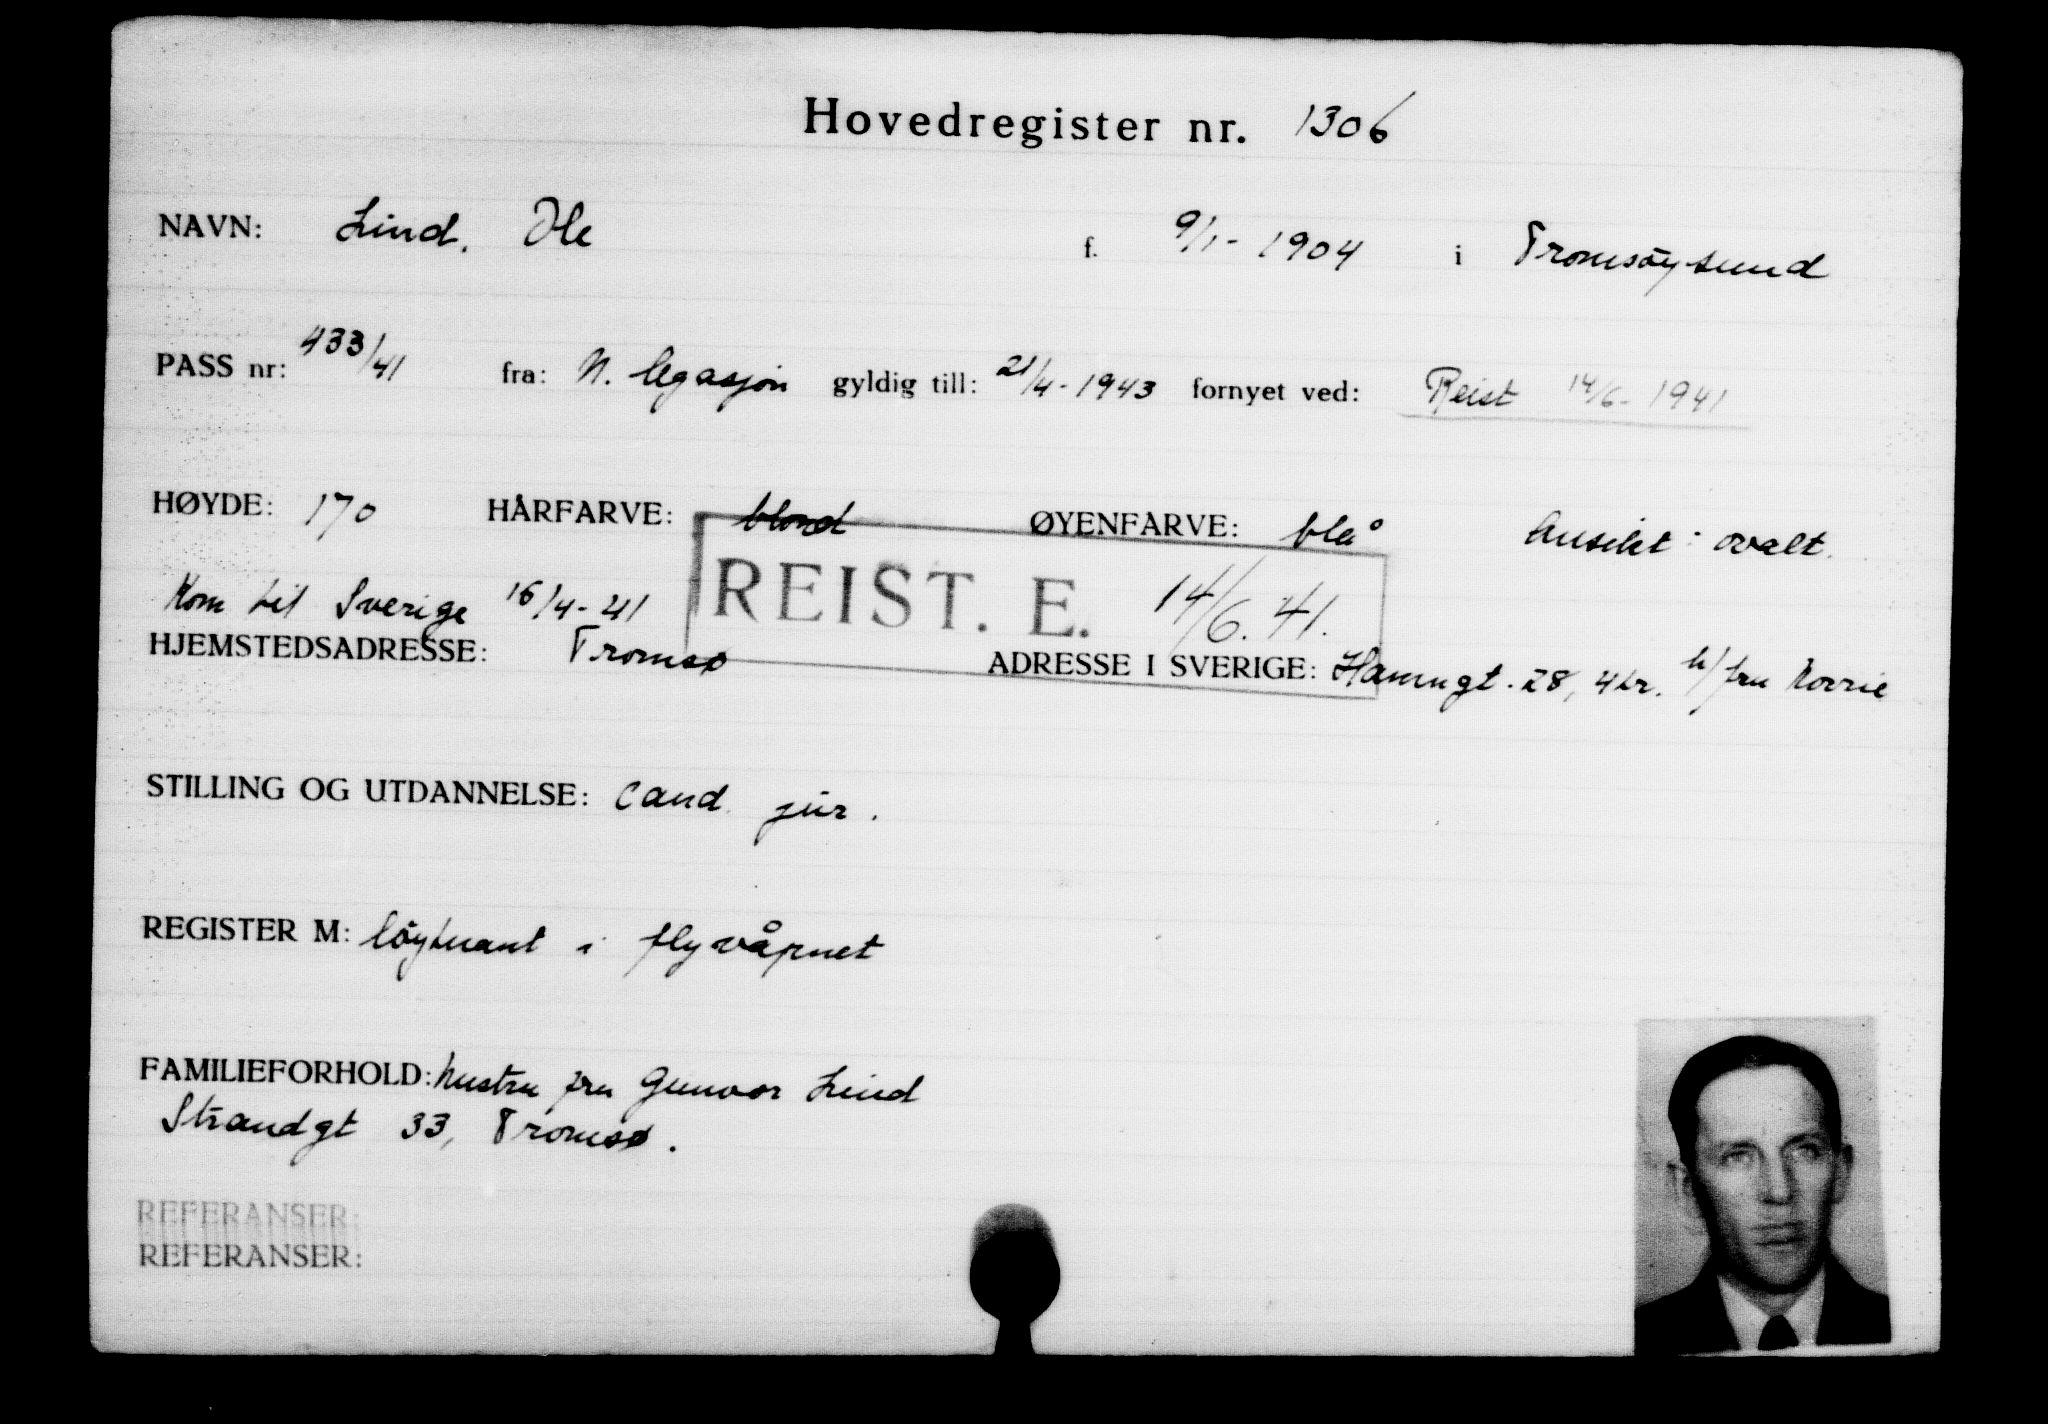 Hovedregister nr. 1306
NAVN: Lind, Ole f. 9/1- 1904 i Tromsöysund
PASS nr: 433/41 fra: N. legasjon gyldig till: 21/4- 1943 fornyet ved: Reist 14/6- 1941
HØYDE: 170 HÅRFARVE: blond ØYENFARVE: blå Ansikt: ovalt.
REIST. E. 14/6. 41.
Kom til Sverige 16/4- 41
HJEMSTEDSADRESSE: Tromsø ADRESSE I SVERIGE: Hamngt. 28, 4 tr. h/ fru Norrie
STILLING OG UTDANNELSE: cand jur.
REGISTER M: löytnant i flyvåpnet
FAMILIEFORHOLD: hustru fru Gunvor Lind
Strandgt 33, Tromsø.
REFERANSER:
REFERANSER: